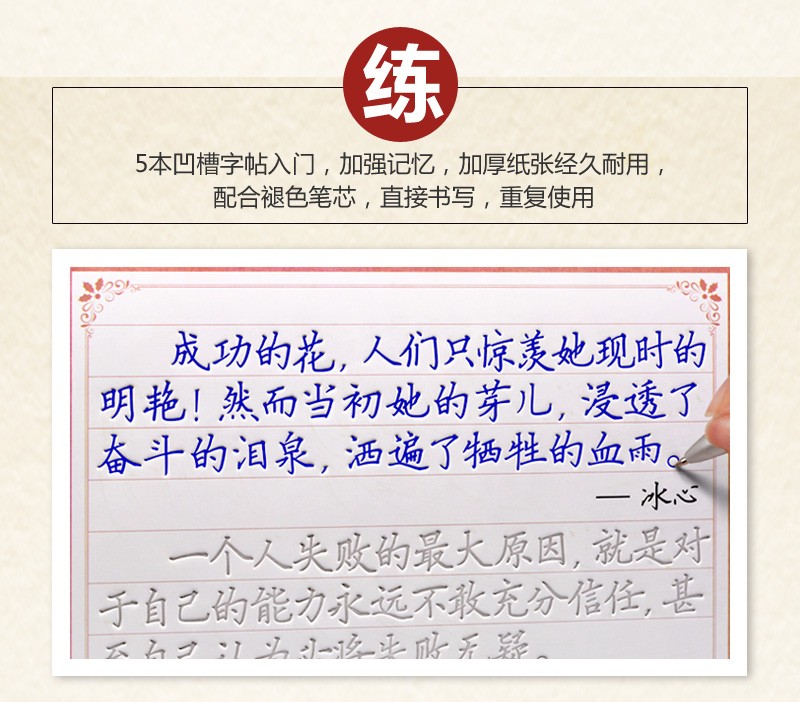 练
5本凹槽字帖入门，加强记忆，加厚纸张经久耐用，
配合褪色笔芯，直接书写，重复使用
成功的花，人们只惊羡她现时的
明艳！然而当初她的芽儿，浸透了
奋斗的泪泉，洒遍了牺牲的血雨。
— 冰心
一个人失败的最大原因，就是对
于自己的能力永远不敢充分信任，甚
至自己认为必将失败无疑。